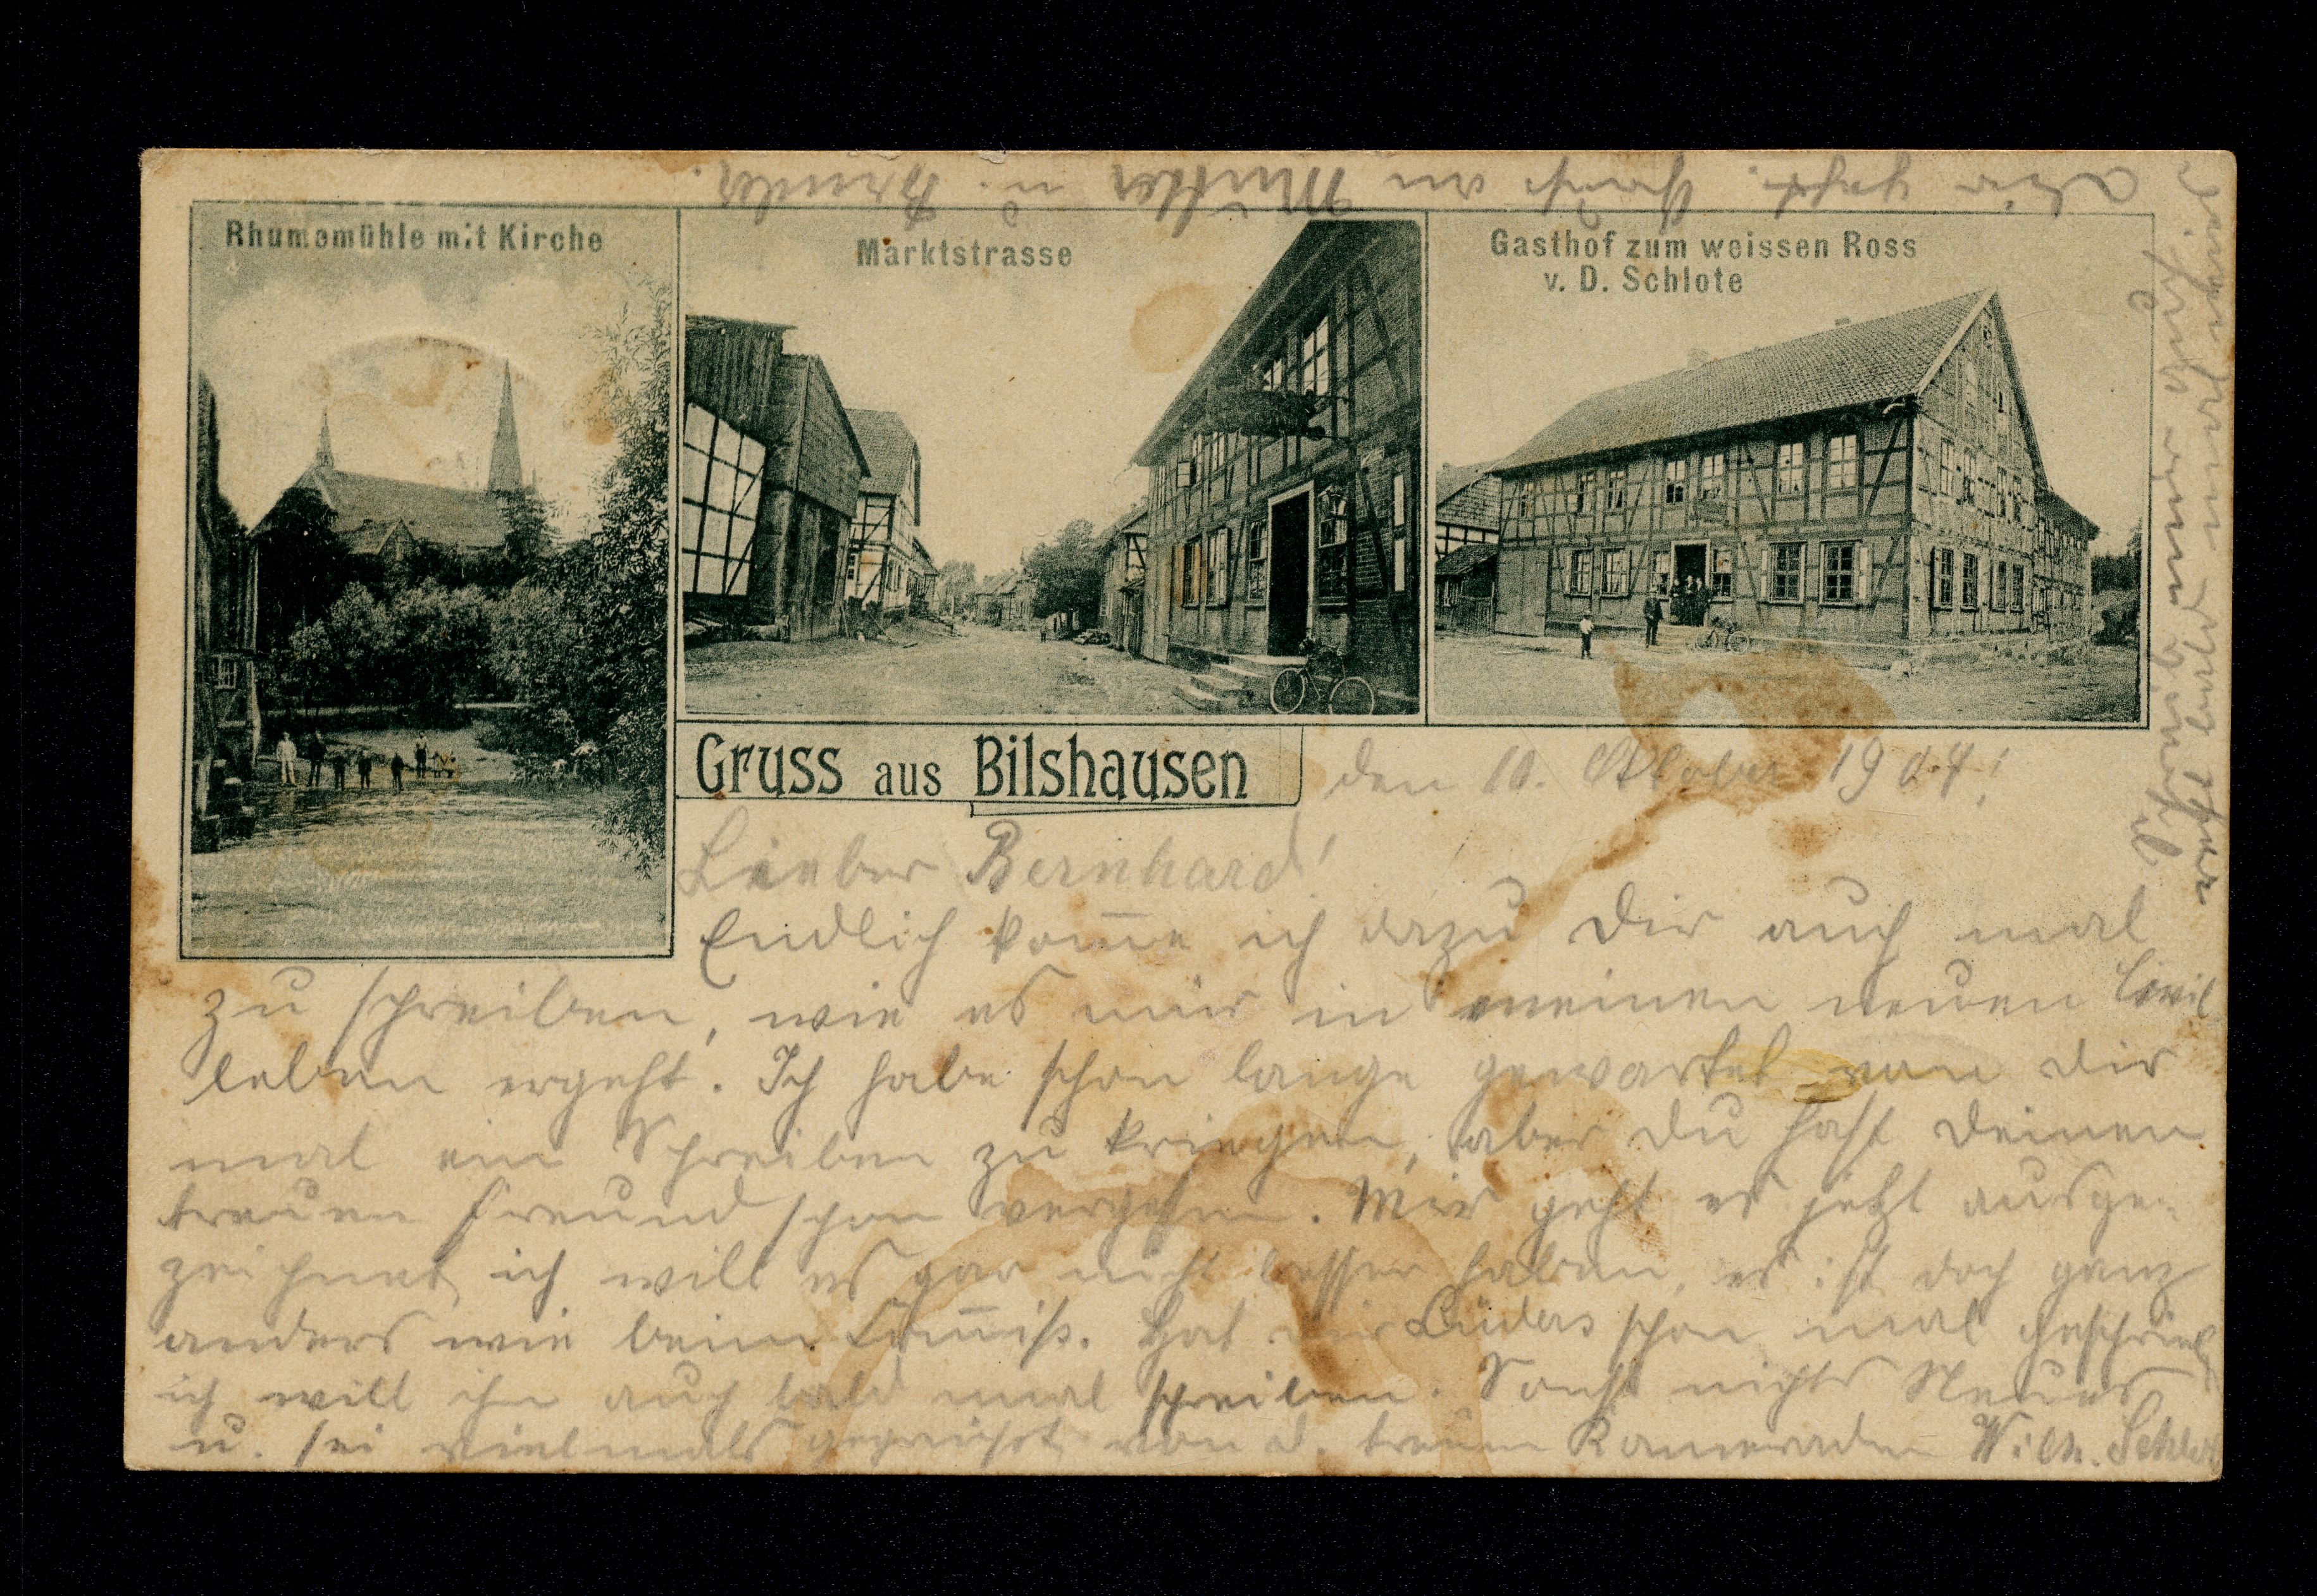 Rhumemühle mit Kirche
Marktstrasse
Gasthof zum weissen Ross
v. D. Schlote
Gruss aus Bilshausen
den 10. Oktober 1904!
Lieber Bernhard!
Endlich kom̅e ich dazu Dir auch mal
zu schreiben, wie es mir in meinen neuen Civil
leben ergeht. Ich habe schon lange gewartet von Dir
mal ein Schreiben zu kriegen, aber Du hast Deinen
treuen Freund schon vergessen. Mir geht es jetzt ausge-
zeichnet, ich will es gar nicht besser haben, es ist doch ganz
anders wie beim Com̅iß. Hat dir Lüders schon mal geschrieben
ich will ihn auch bald mal schreiben. Sonst nichts Neues
u. sei vielmals gegrüßt von d. treuen Kameraden Wilh. Schlote
wie
Dir geht. Gruß an Mutter u. Bruder.